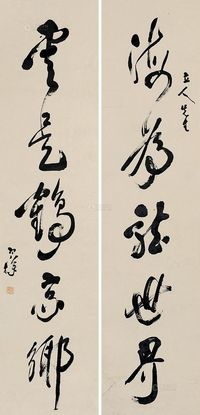 立人先生
海為龍世界
雲是鶴家鄉